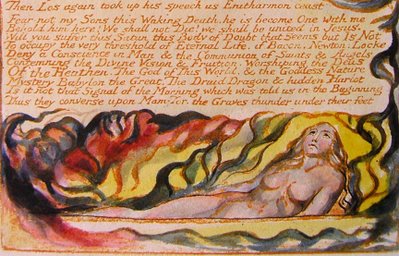 Then Los again took up his speech as Enitharmon ceast
Fear not my Sons this Waking Death. he is become One with me
Behold him here! We shall not Die! we shall be united in Jesus.
Will you suffer this Satan this Body of Doubt that Seems but Is Not
To occupy the very threshold of Eternal Life. if Bacon, Newton, Locke
Deny a Conscience in Man & the Communion of Saints & Angels
Contemning the Divine Vision & Fruition, Worshiping the Deus
Of the Heathen, The God of This World, & the Goddess Nature
Mystery Babylon the Great, The Druid Dragon & hidden Harlot
Is it not that Signal of the Morning which was told us in the Beginning
Thus they converse upon Mam-Tor. the Graves thunder under their feet